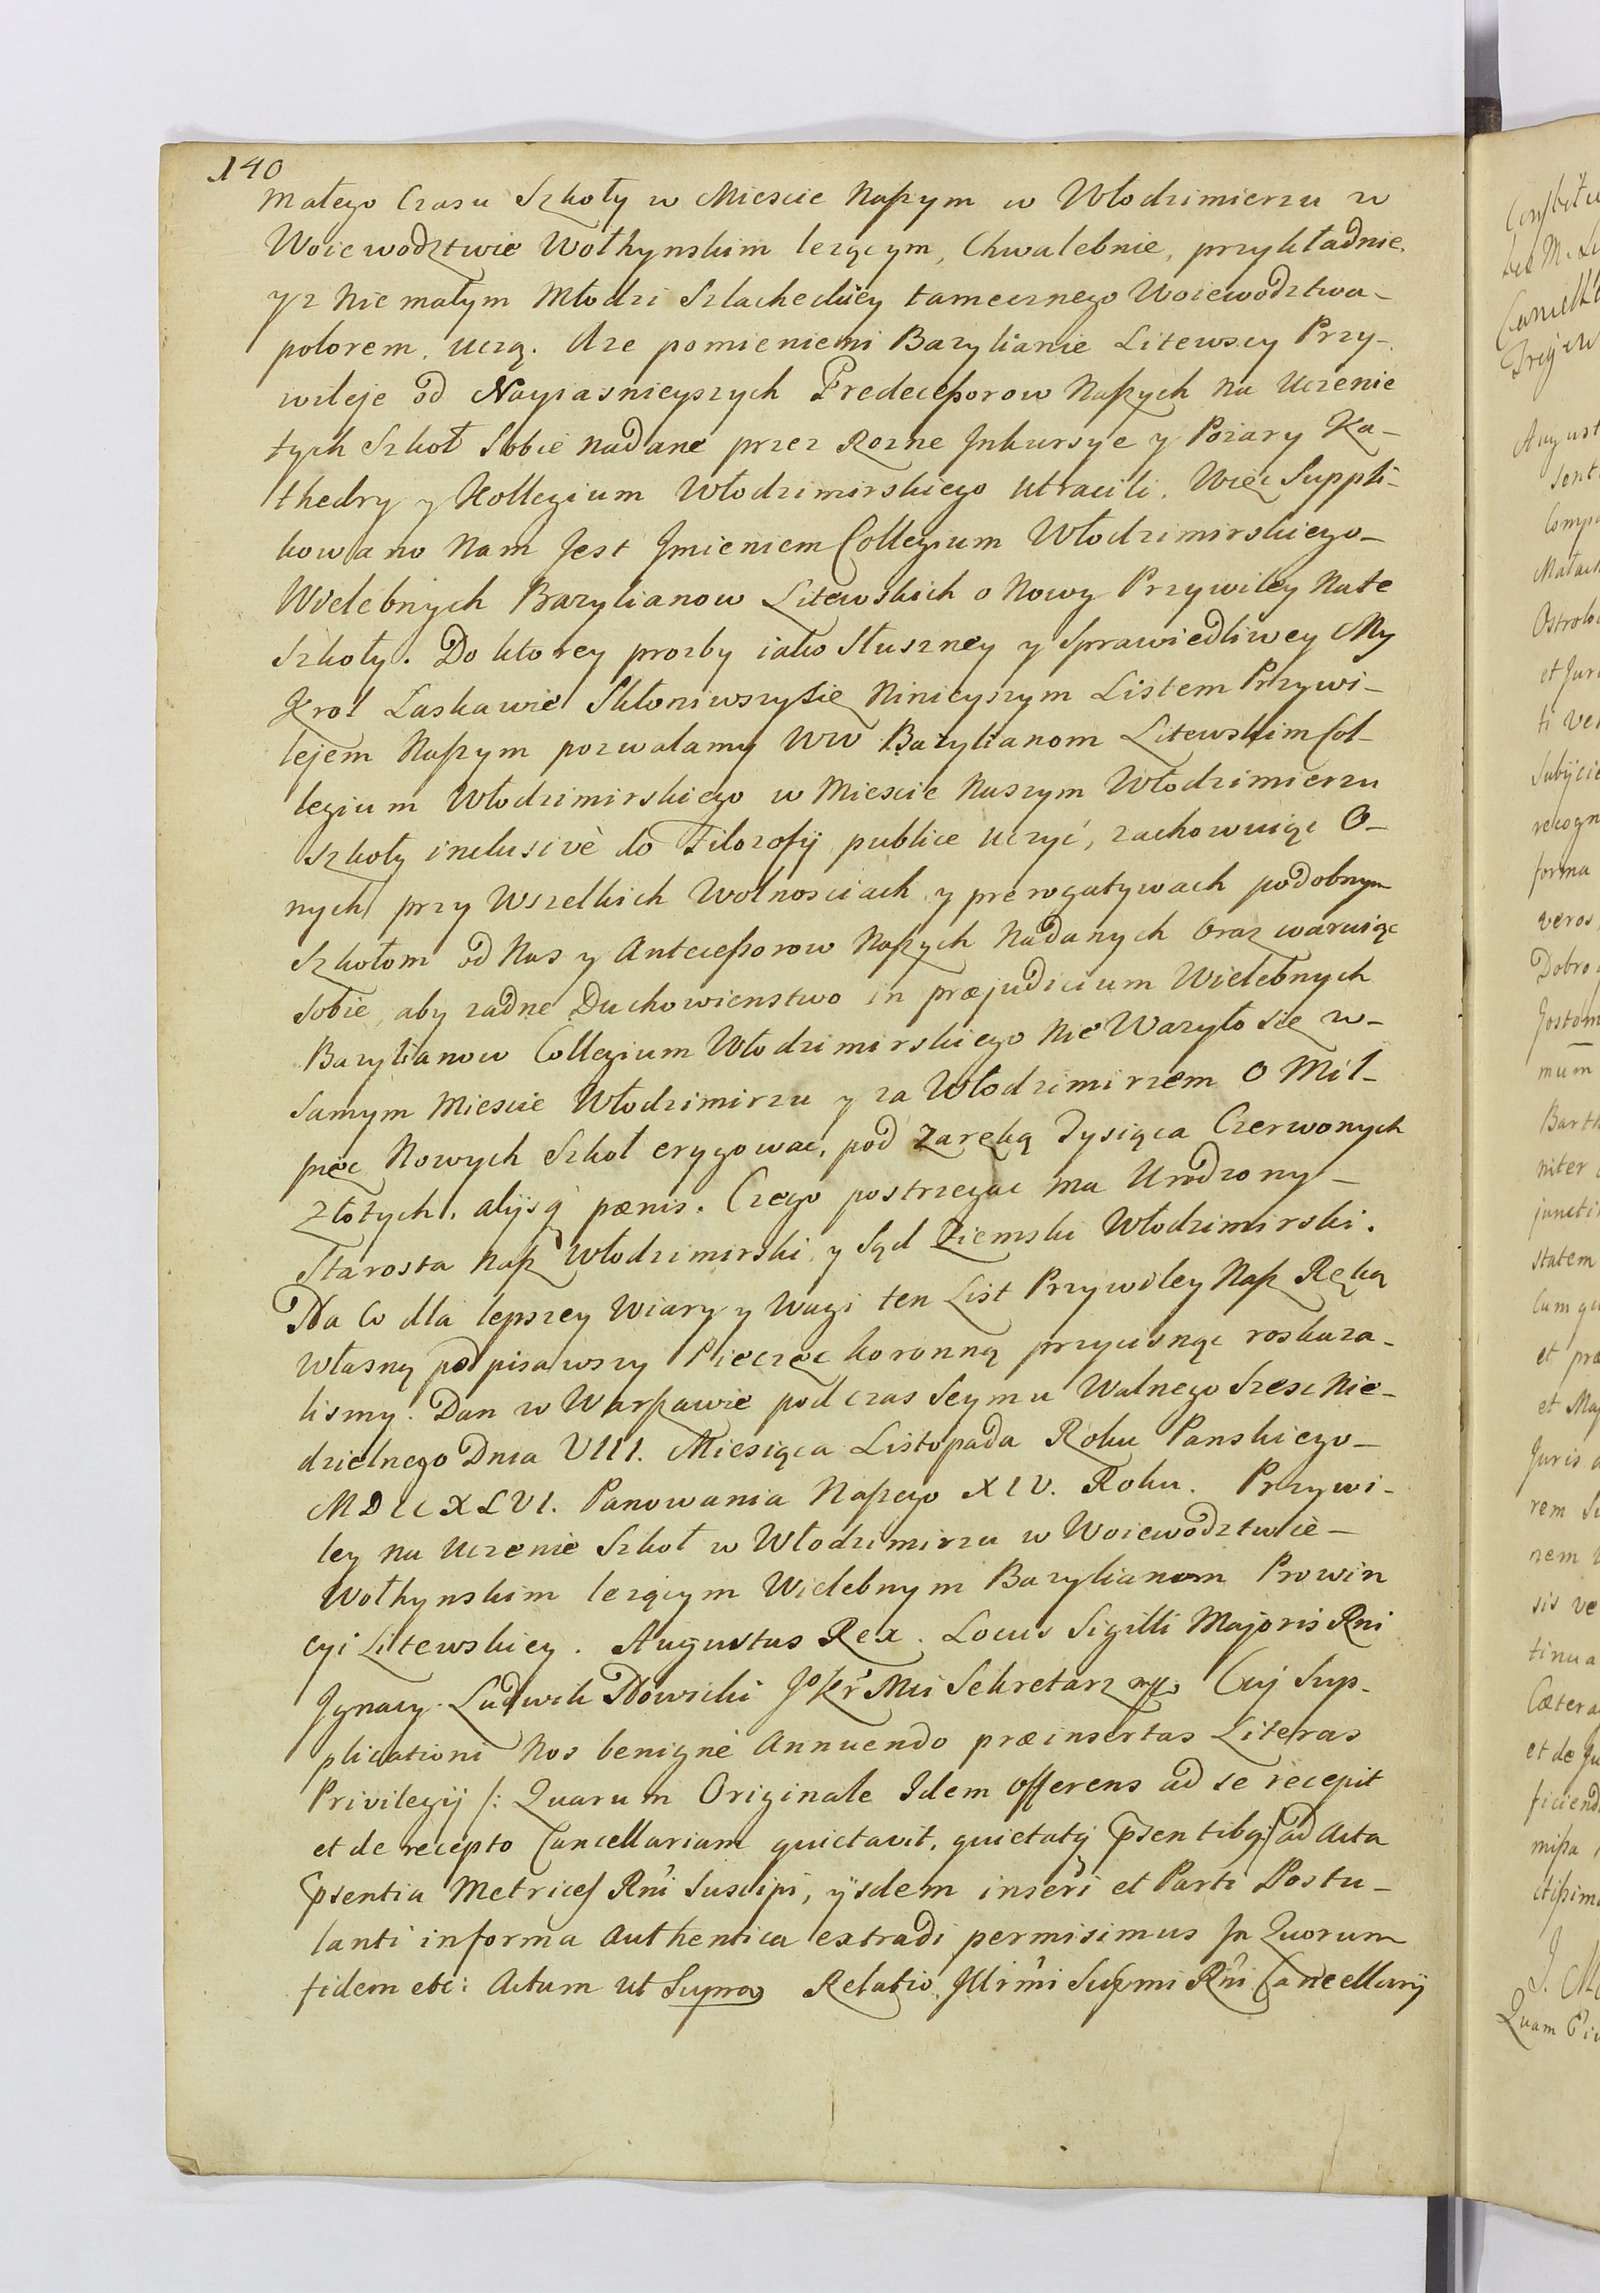 140
małego Czasu Szkoły w Miescie Naszym w Włodzimierzu w
Woiewodztwie Wołhynskim lezącym, Chwalebnie, przykładnie
y z Nie małym Młodzi Szlacheckiey tamecznego Woiewodztwa-
polorem, uczą. Aze pomienieni Bazylianie Litewscy Przy-
wileje od Nayiasnieyszych Predecessorow Naszych na Uczenie
tych Szkoł Sobie nadane przez Rozne Inkursye y Pożary Ka-
thedry y Kollegium Włodzimirskiego Utracili. Więc Suppli-
kowano Nam Jest Jmieniem Collegium Włodzimirskiego-
Wielebnych Bazylianow Litewskich o Nowy Przywiley Na te
Szkoły. Do ktorey prozby iako Słuszney y Sprawiedliwey My
Krol Łaskawie Skłoniwszysie Ninieyszym Listem Przywi-
lejem Naszym pozwalamy WW Bazylianom Litewskim Col-
legium Włodzimirskiego w Miescie Naszym Włodzimierzu
szkoły inclusivè do Filozofij publice uczyć, zachowuiąc O-
nych przy Wszelkich Wolnosciach y prerogatywach podobnym
Szkołom od Nas y Antecessorow Naszych Nadanych Oraz waruiąc
sobie, aby zadne Duchowienstwo in præjudicium Wielebnych
Bazylianow Collegium Włodzimirskiego Nie Wazyło się w-
samym Miescie Włodzimirzu y za Włodzimirzem O Mil-
pięc Nowych Szkoł erygowac, pod Zaręką Tysiąca Czerwonych
Złotych, alijsq pænis. Czego postrzegac ma Urodzony-
Starosta Nasz Włodzimirski y Sąd Ziemski Włodzimirski.
Na Co dla lepszey Wiary y Wagi ten List Przywiley Nasz Ręką
Własną podpisawszy Pieczęc koronną przycisnąc roskaza-
lismy. Dan w Warszawie podczas Seymu Walnego Szesc Nie-
dzielnego Dnia VIII. Miesiąca Listopada Roku Panskiego-
MDCCXLVI. Panowania Naszego XIV. Roku. Przywi-
ley na Uczenie Szkoł w Włodzimirzu w Woiewodztwie-
Wołhynskim lezącym Wielebnym Bazylianom Prowin
cyi Litewskiey. Augustus Rex. Locus Sigilli Majoris Rni
Ignacy Ludwik Nowicki JoKr Mci Sekretarz mp Cuj Sup-
plicationi Nos benignè Annuendo præinsertas Literas
Privilegij /: Quarum Originale Idem Offerens ad se recepit
et de recepto Cancellariam quietavit, quietatq psentibq:/ ad Acta
psentia Metrices Rni Suscipi, ijsdem inseri et Parti Postu-
lanti in forma Authentica extradi permisimus In Quorum
fidem etc: Actum ut Supra Relatio Illrmi Supmi Rni Cancellarij